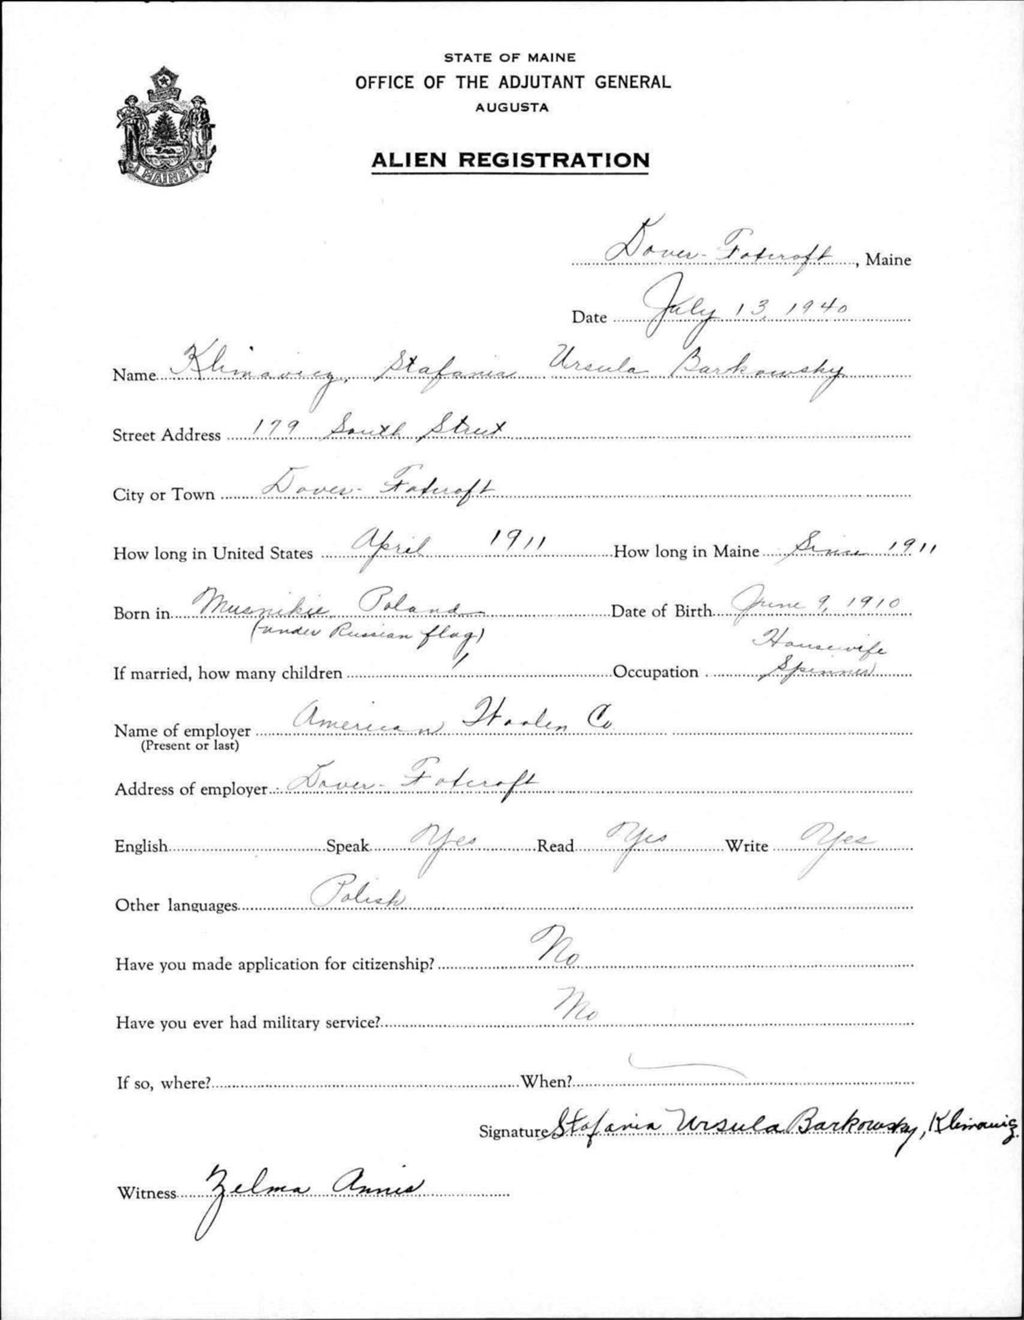 STATE OF MAINE
OFFICE OF THE ADJUTANT GENERAL
AUGUSTA
ALIEN REGISTRATION
MAINE
Dover-Foxcroft, Maine
Date July 13, 1940
Name Klimavicz, Stafania Ursula Barkowsky
Street Address 179 South Street
City or Town Dover-Foxcroft
How long in United States April 1911 How long in Maine Since 1911
Born in Musnikie Poland Date of Birth June 9, 1910
(under Russian flag)
Housewife
If married, how many children 1 Occupation Spinner
Name of employer American Woolen Co
(Present or last)
Address of employer Dover-Foxcroft
English Speak Yes Read Yes Write Yes
Other languages Polish
Have you made application for citizenship? No
Have you ever had military service? No
If so, where? When?
Signature Stafania Ursula Barkowsky, Klimawicz
Witness Zelma Annis